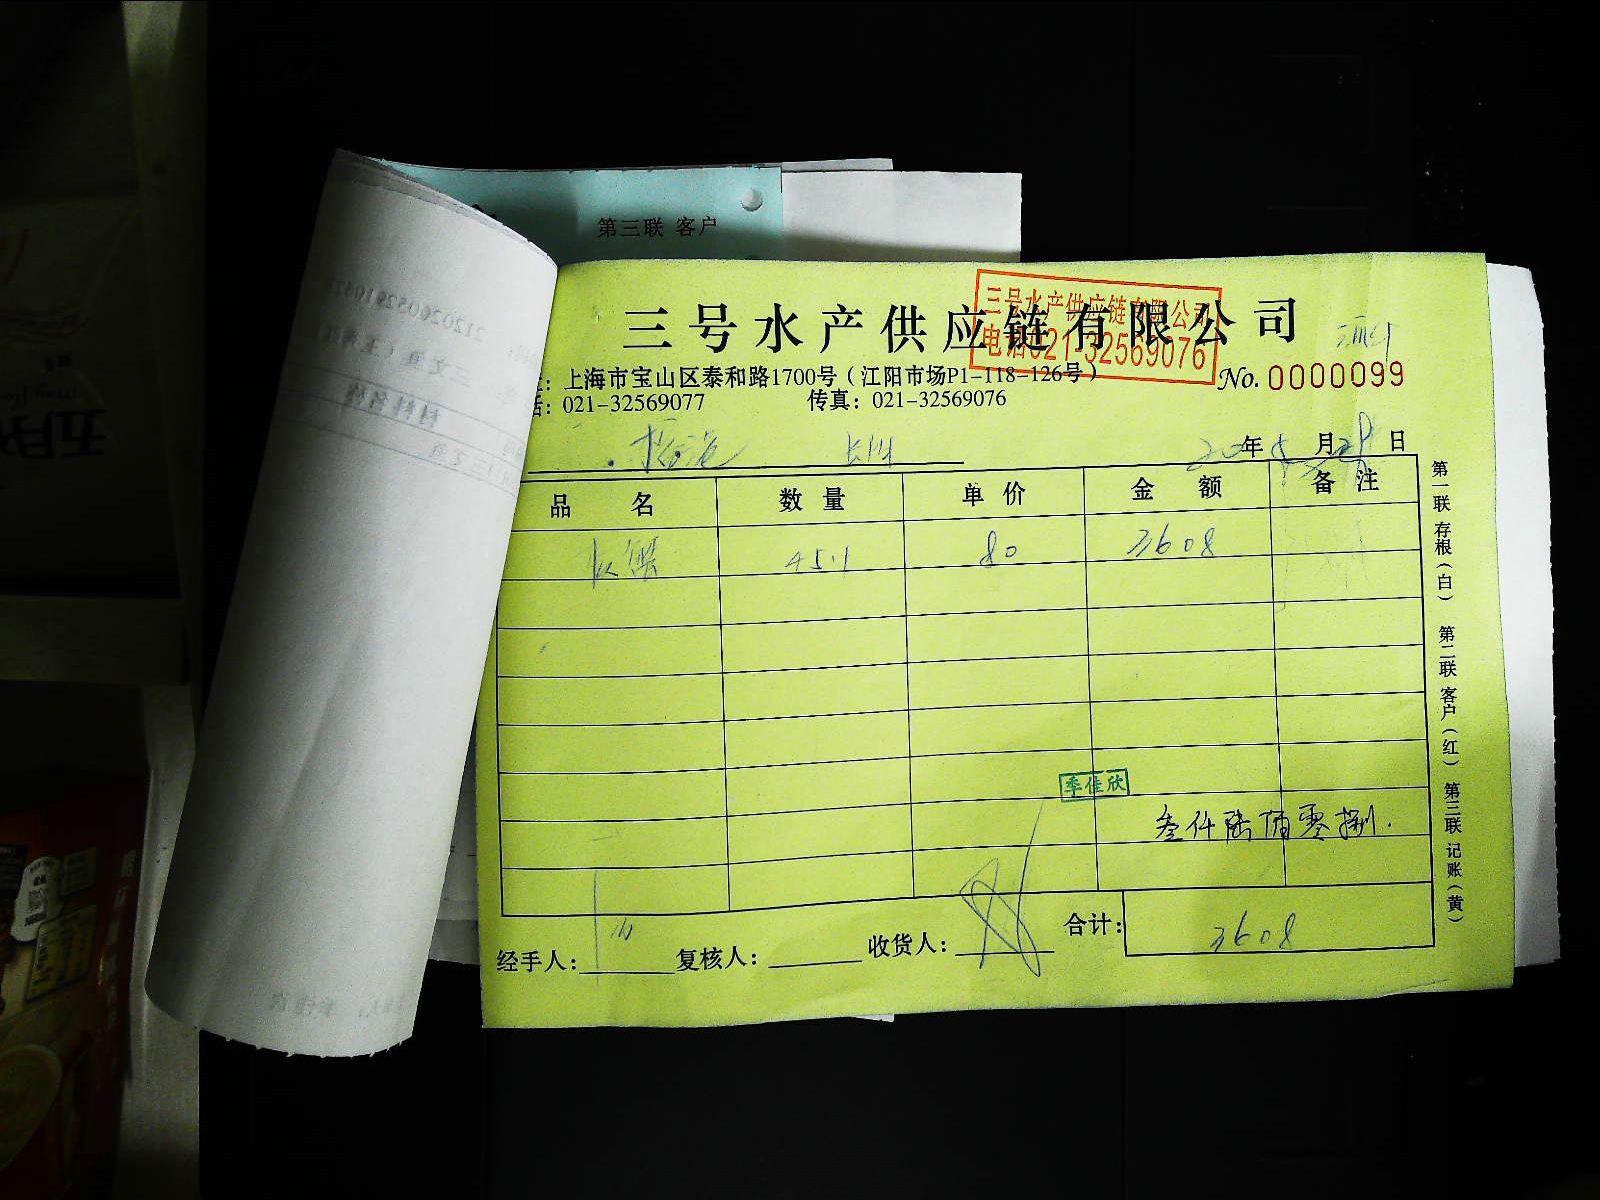 第三联 客户
三号水产供应链有限公司
三号水产供应链有限公司
电话021-32569076
上海市宝山区泰和路1700号（江阳市场P1-118-126号）
No. 0000099
话：021-32569077 传真：021-32569076
20年5月29日
品名 数量 单价 金额 备注
蟹 45.1 80 3608
季佳欣
叁仟陆佰零捌.
合计： 3608
经手人： 复核人： 收货人：
第一联 存根（白） 第二联 客户（红） 第三联 记账（黄）